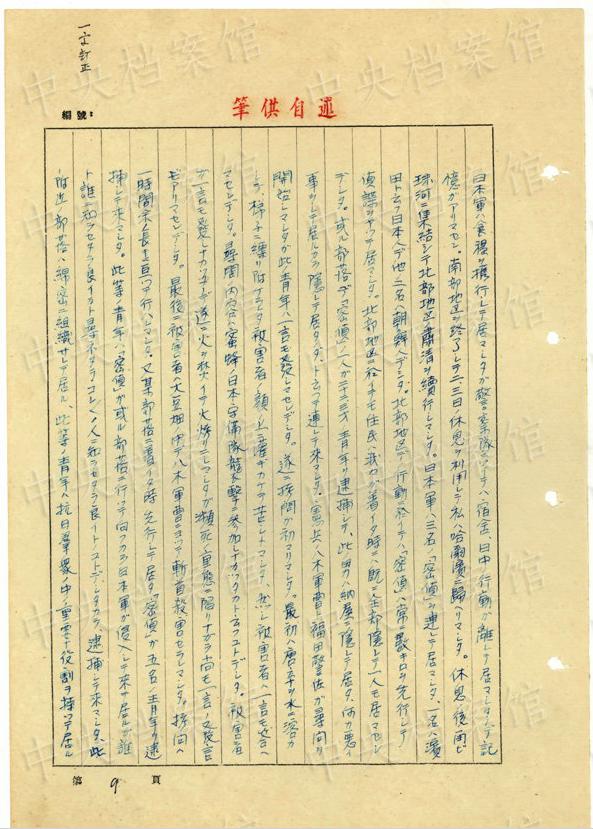 一字訂正
編號：
筆供自述
日本軍ハ食糧ヲ携行シテ居マシタガ警察隊ニツイテハ宿舎、日中ノ行動ガ離レテ居マシタノデ記
憶ガアリマセン。南部地区ヲ終了シテ二三日ノ休息ヲ利用シテ私ハ哈爾濱ニ歸ヘリマシタ。休息ノ後再ビ
珠河ニ集結シテ北部地区ノ肅清ヲ續行シマシタ。日本軍ハ三名ノ「密偵」ヲ連レテ居マシタ、一名ハ濱
田ト云フ日本人デ他ノ二名ハ朝鮮人デシタ。北部地区ノ行動ニ於イテハ「密偵」ハ常ニ數キロヲ先行シテ
偵諜ヲヤッテ居マシタ。北部地区ニ於イテモ住民ハ我々ガ着イタ時ニハ既ニ全部隠レテ一人モ居マセン
デシタ。或ル部落デ「密偵」ノ一人ガ二十二三才ノ青年ヲ逮捕シテ、此ノ男ハ納屋ニ隠レテ居タ、何カ悪イ
事ヲシテ居ルカラ隠レテ居タノダ、ト云フテ連レテ来マシタ。憲兵ノ八木軍曹ト福田警佐ガ尋問ヲ
開始シマシタガ此ノ青年ハ一言モ發シマセンデシタ。遂ニ拷問ガ初マリマシタ。最初ハ唐辛子ヲ水ニ溶カ
シテ、梯子ニ縛リ附ケラレタ被害者ノ顔ノ上ニ灌ギカケテ苦シメマシタ、然シ被害者ハ一言モ答ヘ
マセンデシタ。尋問内容ハ蜜蜂ノ日本守備隊襲撃ニ参加シナカッタカト云フコトデシタ。被害者
ガ一言モ發シナカッタノデ遂ニ火ヲ焚イテ火烤リニシマシタガ瀕死ノ重態ニ陥リナガラ尚モ一言ノ發言
モアリマセンデシタ。最後ニ被害者ハ大豆畑ノ中デ八木軍曹ニヨッテ斬首殺害セラレマシタ。拷問ハ
一時間余ノ長キニ亘ッテ行ハレマシタ。又某部落ニ着イタ時先行シテ居タ「密偵」ガ五名ノ青年ヲ逮
捕シテ来マシタ。此等ノ青年ハ「密偵」ガ或ル部落ニ行ッテ向フカラ日本軍ガ侵入シテ来テ居ルガ誰
ト誰ニ知ラセタラ良イカト尋ネタラコレコレノ人ニ知ラセタラ良イト云フノデシタカラ、逮捕シテ来マシタ、此ノ
附近ノ部落ハ綿密ニ組織サレテ居ル、此等ノ青年ハ抗日群衆ノ中ノ重要ナ役割ヲ持ツテ居ル
第 9 頁
中央档案馆